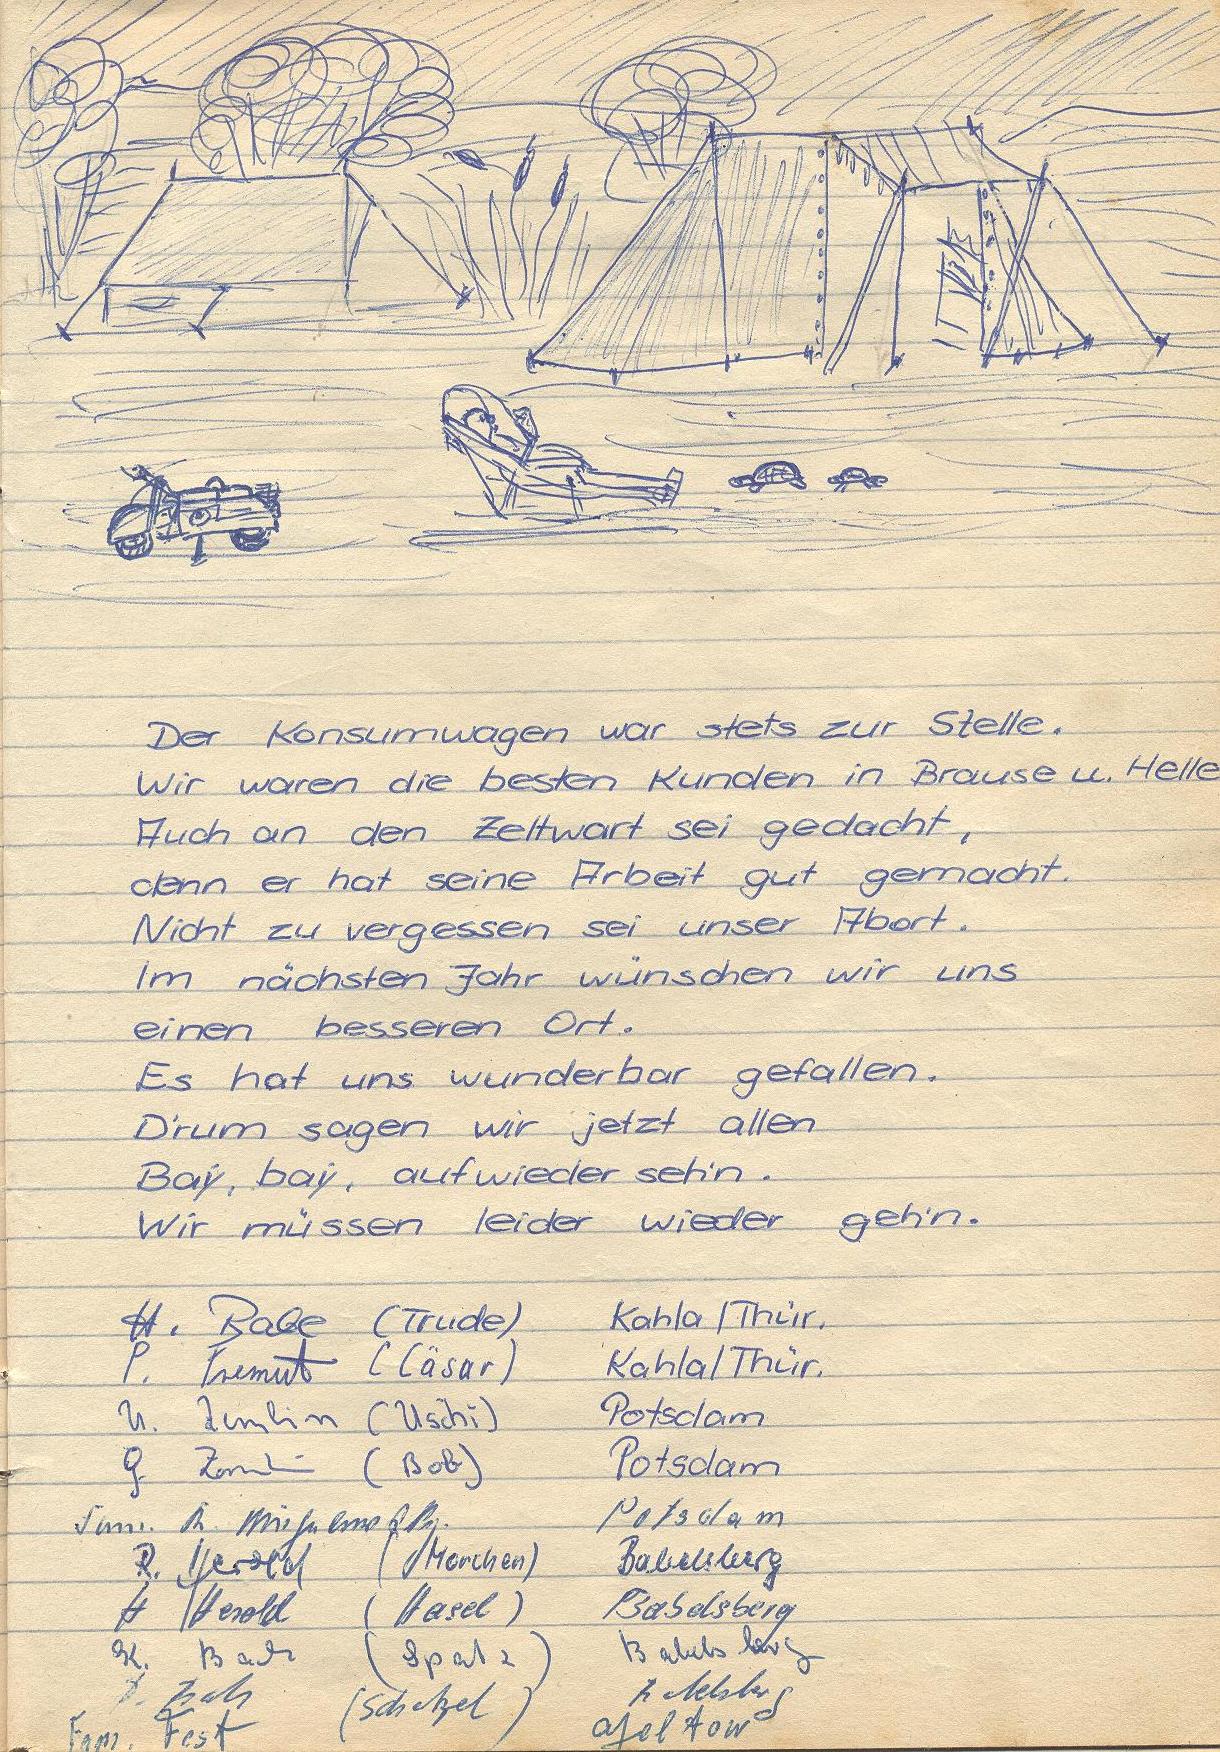 Der Konsumwagen war stets zur Stelle.
Wir waren die besten Kunden in Brause u. Helle
Auch an den Zeltwart sei gedacht,
denn er hat seine Arbeit gut gemacht.
Nicht zu vergessen sei unser Abort.
Im nächsten Jahr wünschen wir uns
einen besseren Ort.
Es hat uns wunderbar gefallen.
D'rum sagen wir jetzt allen
Baÿ, baÿ, aufwiederseh'n.
Wir müssen leider wieder geh'n.
H. (Trude) Kahla/Thür.
P. (Cäsar) Kahla/Thür.
U. (Uschi) Potsdam
(Bob) Potsdam
Fam. Potsdam
R. Herold Babelsberg
H Herold (Hasel) Babelsberg
K. (Spatz) Babelsberg
(Schatzel)
Fam. Fest